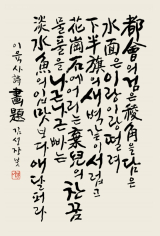 都會의 검은 稜角을 담은
水面은 이랑이랑 떨려
下半旗의 새벽같이 서럽고
花崗石에 어리는 棄兒의 찬꿈
물풀을 나근나근 빠는
淡水魚의 입맛보다 애달퍼라
이육사 詩 畵題